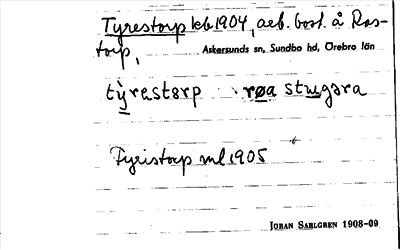 Tyrestorp kb 1904, aeb. bost. å Ras-
torp,
Askersunds sn, Sundbo hd, Örebro län
tỳrəstɔrp røa stugəra
Tyristorp ml 1905
JOHAN SAHLGREN 1908-09